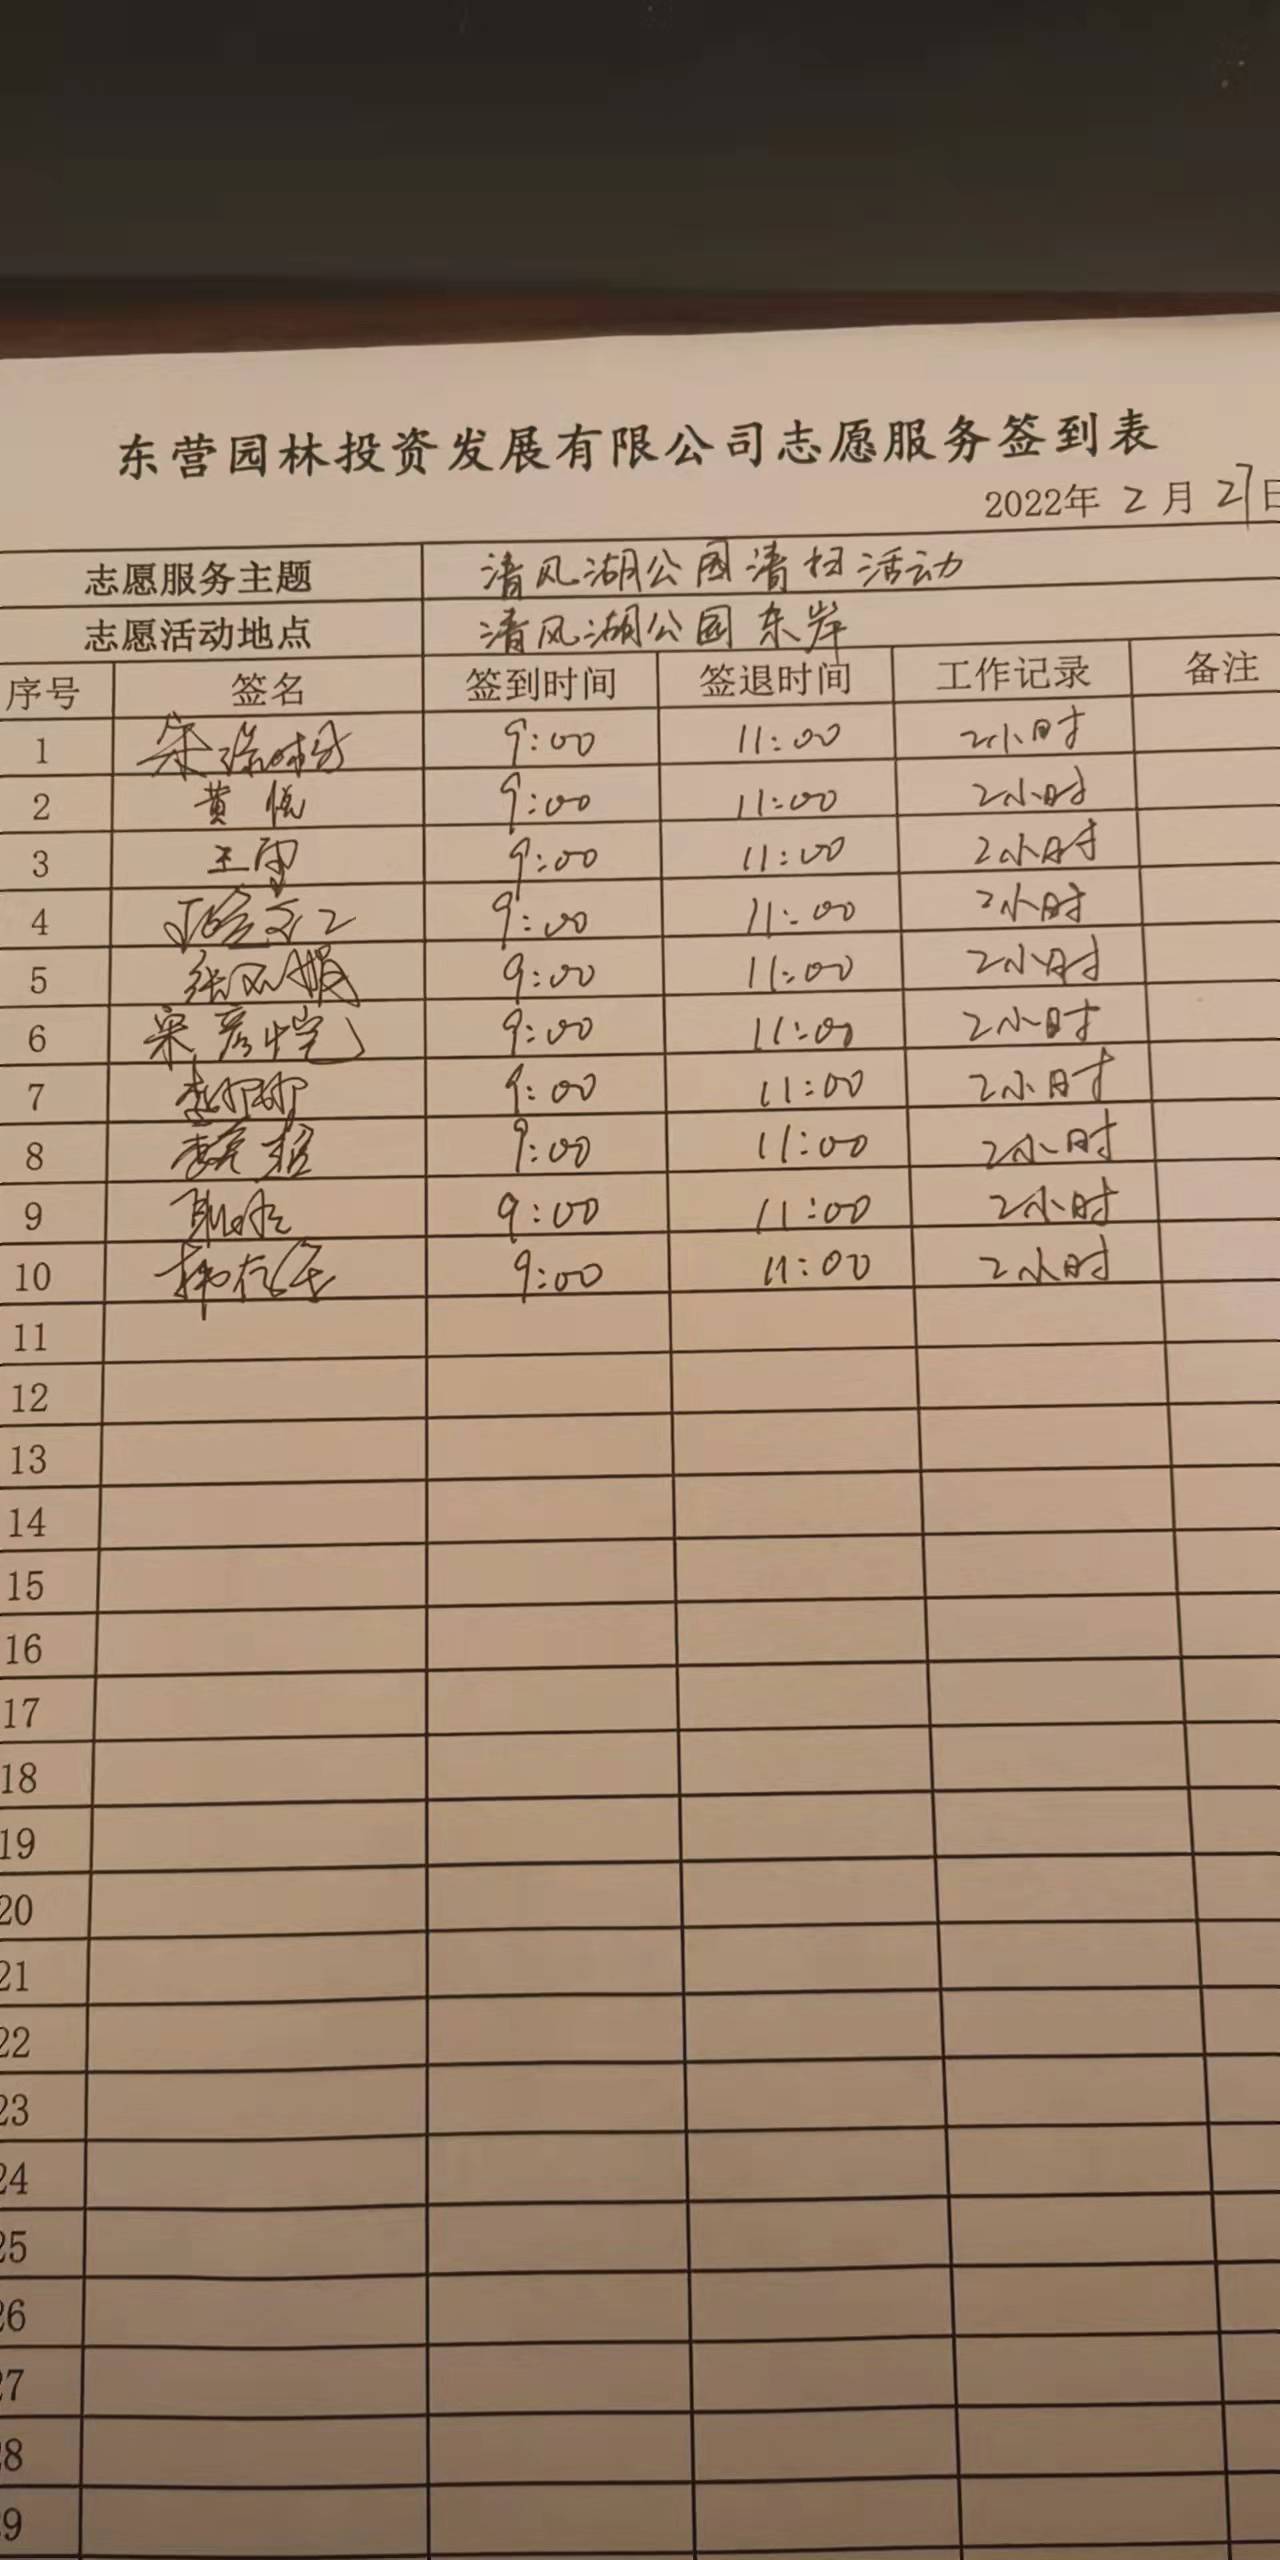 东营园林投资发展有限公司志愿服务签到表
2022年 2 月 27 日
志愿服务主题 清风湖公园清扫活动
志愿活动地点 清风湖公园东岸
序号 签名 签到时间 签退时间 工作记录 备注
1 9:00 11:00 2小时
2 黄悦 9:00 11:00 2小时
3 王雷 9:00 11:00 2小时
4 9:00 11:00 2小时
5 张风娟 9:00 11:00 2小时
6 宋彦恺 9:00 11:00 2小时
7 李娜娜 9:00 11:00 2小时
8 9:00 11:00 2小时
9 9:00 11:00 2小时
10 9:00 11:00 2小时
11
12
13
14
15
16
17
18
19
20
21
22
23
24
25
26
27
28
29